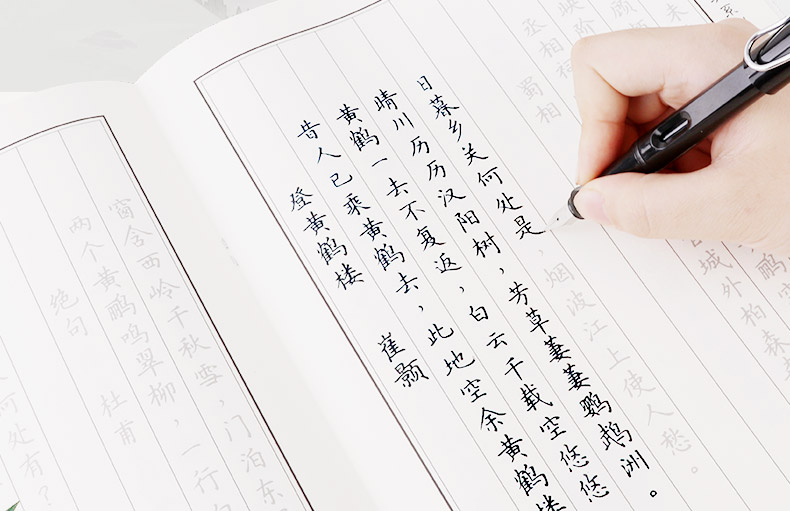 何处有？
绝句 杜甫
两个黄鹂鸣翠柳，一行白
窗含西岭千秋雪，门泊东
登黄鹤楼 崔颢
昔人已乘黄鹤去，此地空余黄鹤楼
黄鹤一去不复返，白云千载空悠悠
晴川历历汉阳树，芳草萋萋鹦鹉洲。
日暮乡关何处是，烟波江上使人愁。
蜀相
丞相祠 城外柏森
映阶 鹂
顾
未